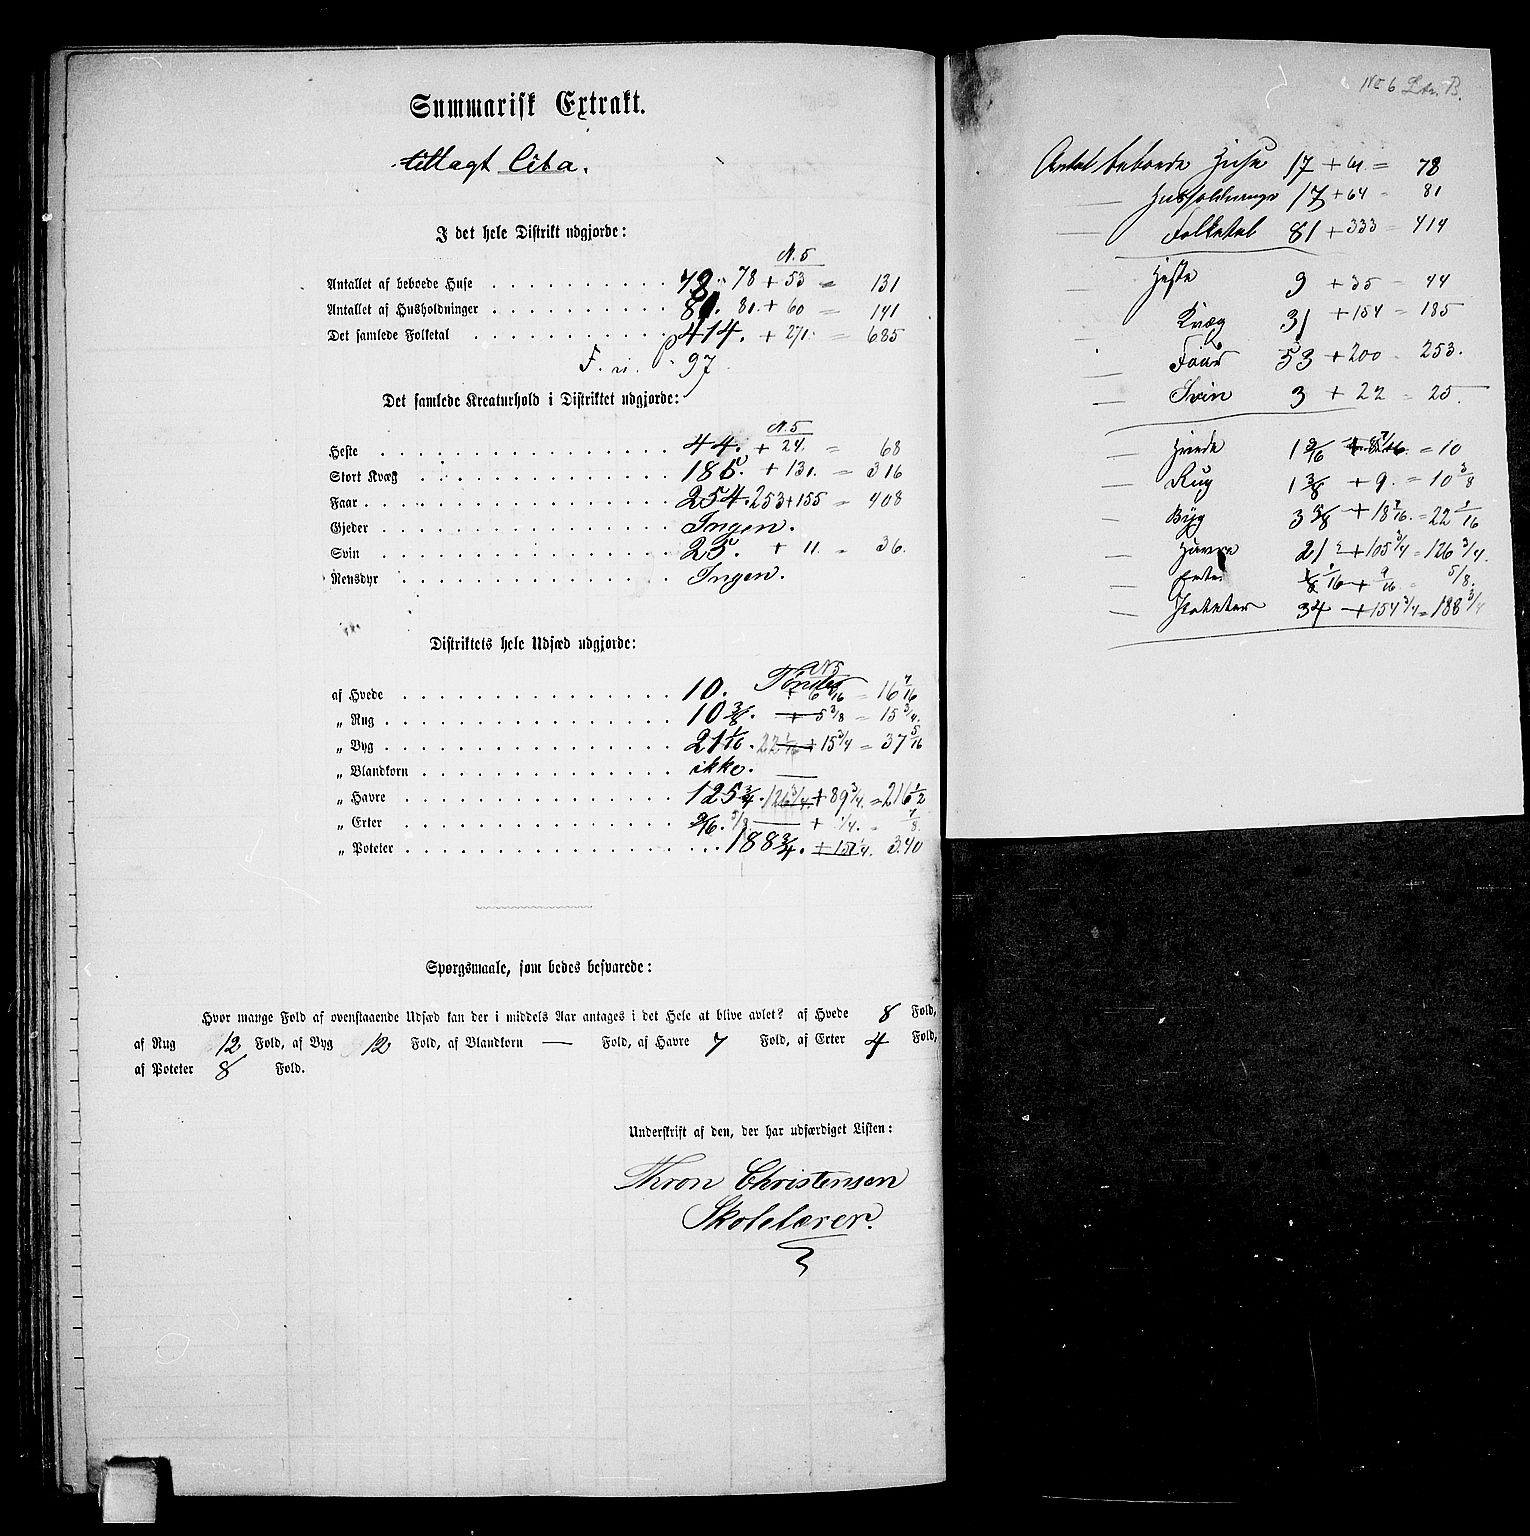 Summarisk Extrakt.
tillagt Lit a.
I det hele Distrikt udgjorde:
N. 5
Antallet af beboede Huse 78. 78 + 53 = 131
Antallet af Husholdninger 81. 81. + 60 = 141
Det samlede Folketal 414. + 271. = 685
F. n. 97
Det samlede Kreaturhold i Distriktet udgjorde:
N. 5
Heste 44. + 24. = 68
Stort Kvæg 185. + 131. = 316
Faar 254. 253 + 155 = 408
Gjeder Ingen.
Svin 25. + 11. = 36.
Rensdyr Ingen.
Distriktets hele Udsæd udgjorde:
N 5
Tønder
af Hvede 10. + 6 7/16 = 16 7/16
„ Rug 10 3/8. + 5 3/8 = 15 3/4.
„ Byg 21 1/16. 22 1/16 + 15 3/4 = 37 5/16
„ Blandkorn ikke.
„ Havre 125 3/4. 126 3/4. + 89 3/4. = 216 1/2
„ Erter 9/16. 5/8 + 1/4. = 7/8.
„ Poteter 188 3/4. + 151 1/4. 340
Spørgsmaale, som bedes besvarede:
Hvor mange Fold af ovenstaaende Udsæd kan der i middels Aar antages i det Hele at blive avlet? af Hvede 8 Fold,
af Rug 12 Fold, af Byg 12 Fold, af Blandkorn — Fold, af Havre 7 Fold, af Erter 4 Fold,
af Poteter 8 Fold.
Underskrift af den, der har udfærdiget Listen:
Thron Christensen
Skolelærer.
No 6 Ltr. B.
Antal beboede Huse 17 + 61 = 78
— Husholdninger 17 + 64 = 81
— Folketal 81 + 333 = 414
— Heste 9 + 35 = 44
— Kvæg 31 + 154 = 185
— Faar 53 + 200 = 253.
— Svin 3 + 22 = 25.
— Hvede 1 9/16 + 8 7/16. = 10
— Rug 1 3/8 + 9. = 10 3/8
— Byg 3 5/8 + 18 7/16. = 22 1/16
— Havre 21 + 105 3/4 = 126 3/4.
— Erter 1/16 + 9/16 = 5/8.
— Poteter 34 + 154 3/4 = 188 3/4